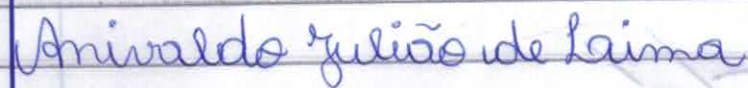 Anivaldo Julião de Laima